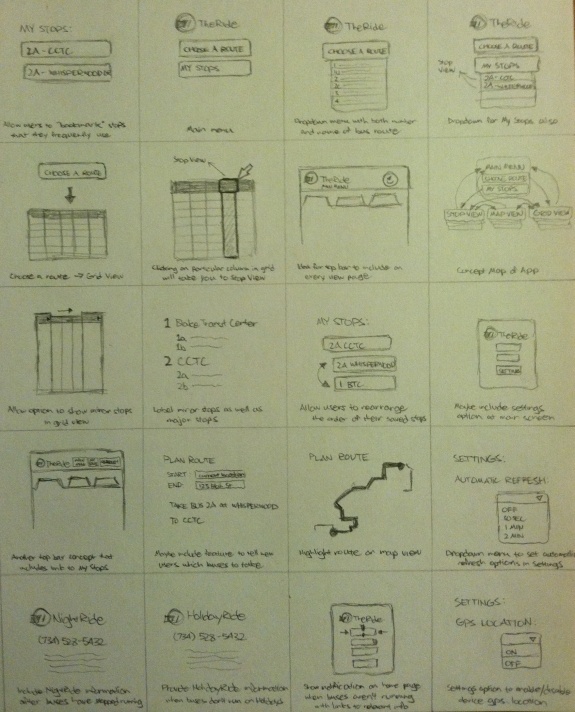 MY STOPS:
2A - CCTC
2A - WHISPERWOOD
Allow users to "bookmark" stops
that they frequently use
TheRide
CHOOSE A ROUTE
MY STOPS
Main menu
TheRide
CHOOSE A ROUTE
1
2
3
4
Dropdown menu with both number
and name of bus route
TheRide
CHOOSE A ROUTE
MY STOPS
Stop
View
2A - CCTC
2A - WHISPERWOOD
Dropdown for My Stops also
CHOOSE A ROUTE
Choose a route → Grid View
Stop View
Clicking on particular column in grid
will take you to Stop View
TheRide
MAIN MENU
Idea for top bar to include on
every new page
MAIN MENU
CHOOSE ROUTE
MY STOPS
STOP VIEW
MAP VIEW
GRID VIEW
Concept Map of App
Allow option to show minor stops
in grid view
1 Blake Transit Center
1a
1b
2 CCTC
2a
2b
Label minor stops as well as
major stops
MY STOPS:
2A CCTC
2A WHISPERWOOD
1 BTC
Allow users to rearrange
the order of their saved stops
TheRide
SETTINGS
Maybe include settings
option at main screen
TheRide
Another top bar concept that
includes link to My Stops
PLAN ROUTE
START: current location
END: 123 Blah St.
TAKE BUS 2A WHISPERWOOD
TO CCTC
Maybe include feature to tell new
users which buses to take
PLAN ROUTE
Highlight route on map view
SETTINGS:
AUTOMATIC REFRESH:
OFF
30 SEC
1 MIN
2 MIN
Dropdown menu to set automatic
refresh options in settings
NightRide
(734) 528-5432
Include NightRide information
after buses have stopped running
HolidayRide
(734) 528-5432
Provide HolidayRide information
when buses don't run on Holidays
TheRide
Show notification on home page
when buses aren't running
with links to relevant info
SETTINGS:
GPS LOCATION:
ON
OFF
Settings option to enable/disable
device gps location